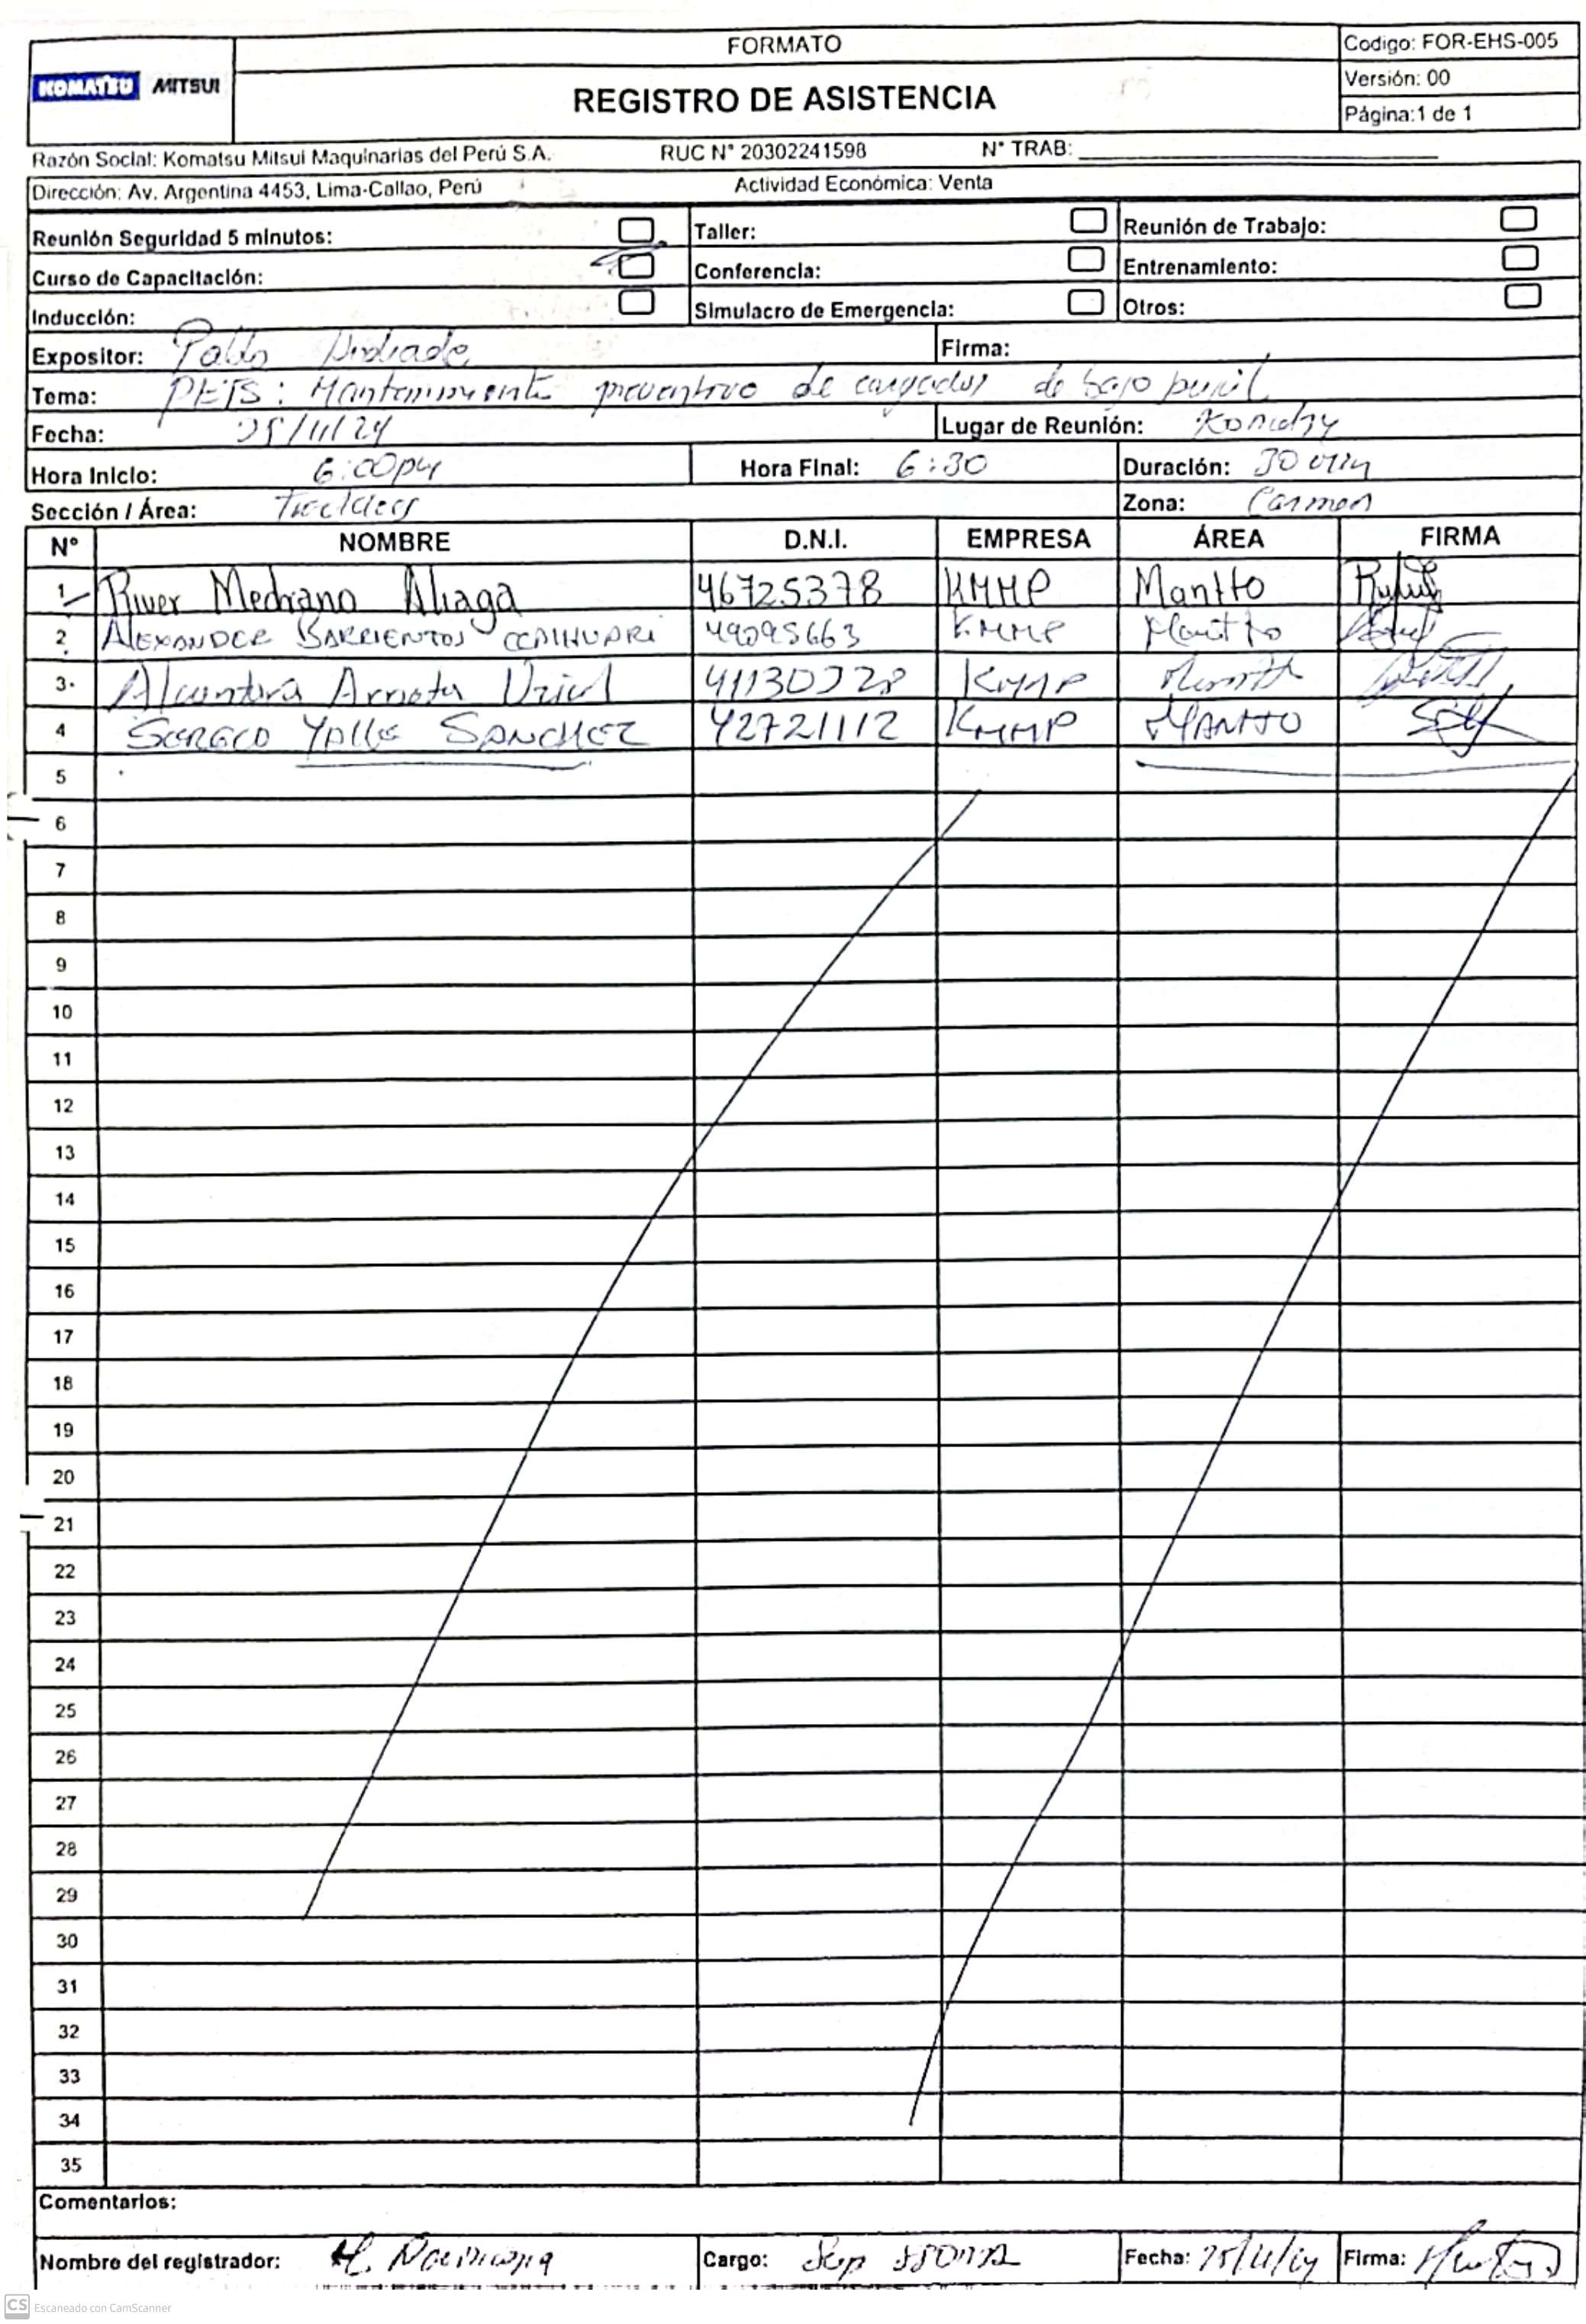 FORMATO
Codigo: FOR-EHS-005
KOMATSU MITSUI
REGISTRO DE ASISTENCIA
Versión: 00
Página:1 de 1
Razón Social: Komatsu Mitsui Maquinarias del Perú S.A. RUC N° 20302241598 N° TRAB:
Dirección: Av. Argentina 4453, Lima-Callao, Perú Actividad Económica: Venta
Reunión Seguridad 5 minutos: Taller: Reunión de Trabajo:
Curso de Capacitación: Conferencia: Entrenamiento:
Inducción: Simulacro de Emergencia: Otros:
Expositor: Pablo Andrade Firma:
Tema: PETS: Mantenimiento preventivo de cargador de bajo perfil
Fecha: 25/11/24 Lugar de Reunión:
Hora Inicio: 6:00pm Hora Final: 6:30 Duración: 30 min
Sección / Área: Zona: Carmen
N° NOMBRE D.N.I. EMPRESA ÁREA FIRMA
1 River Medrano Aliaga 46725378 KMMP Mantto
2 ALEXANDER BARRIENTOS CCAIHUARI 49095663 KMMP Mantto
3 Alcantara Arrieta Uziel KMMP
4 SERGIO YALLE SANCHEZ 42721112 KMMP MANTTO
5
6
7
8
9
10
11
12
13
14
15
16
17
18
19
20
21
22
23
24
25
26
27
28
29
30
31
32
33
34
35
Comentarios:
Nombre del registrador: Cargo: Sup Fecha: 25/11/24 Firma:
CS Escaneado con CamScanner